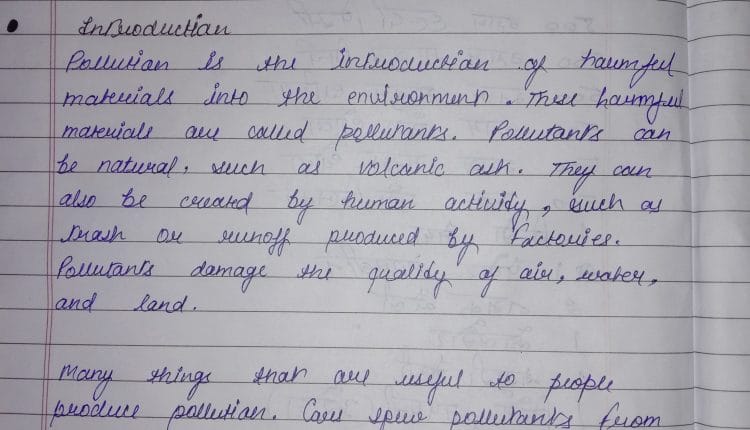 Introduction
Pollution is the introduction of harmful
materials into the environment. These harmful
materials are called pollutants. Pollutants can
be natural, such as volcanic ash. They can
also be created by human activity, such as
trash or runoff produced by factories.
Pollutants damage the quality of air, water,
and land.
Many things that are useful to people
produce pollution. Cars spew pollutants from